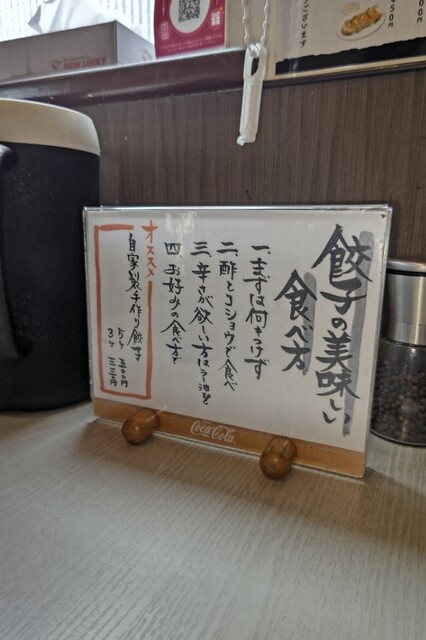 餃子の美味しい
食べ方
一、まずは何もつけず
二、酢とコショウで食べ
三、辛さが欲しい方はラー油を
四、お好みの食べ方で
オススメ
自家製手作り餃子
5ヶ 五百円
3ヶ 三三〇円
Coca-Cola
ございます
NEW LUCKY